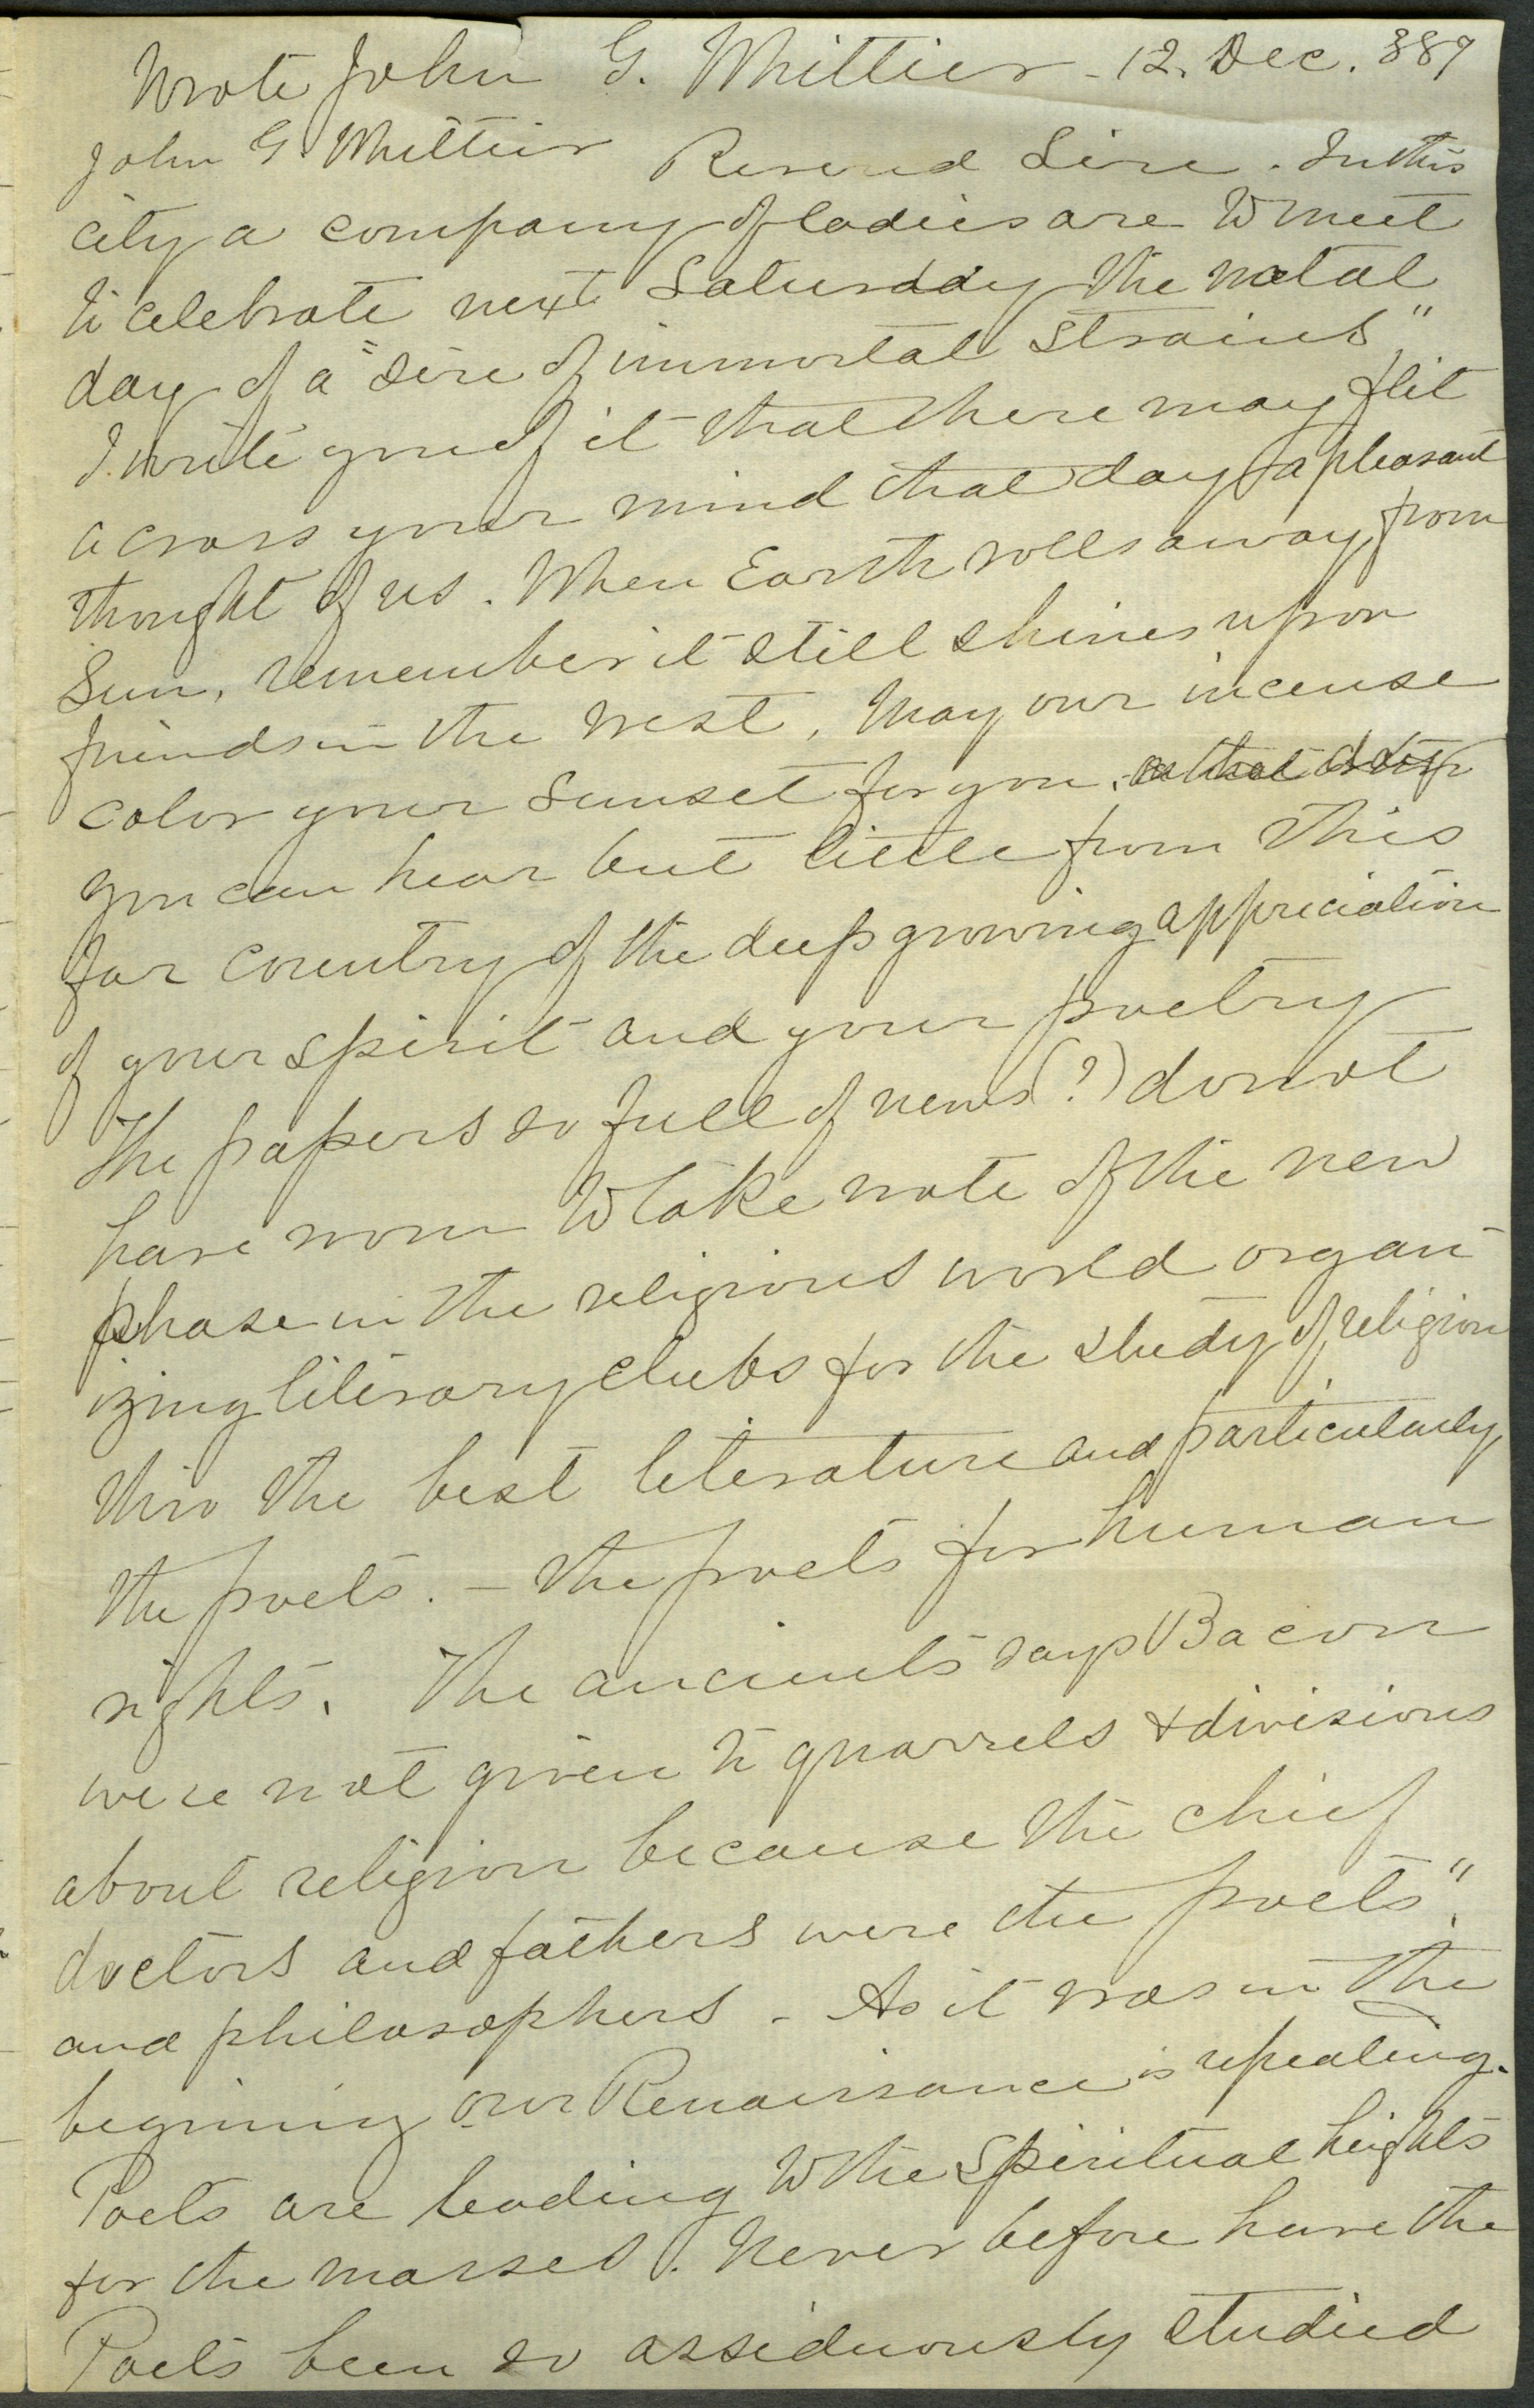 Wrote John G. Whittier - 12. Dec. 889
John G. Whittier Reverend Sire. In this
city a company of ladies are to meet
to celebrate next Saturday the natal
day of a "Sire of immortal strains"
I write you of it that there may flit
across your mind that day a pleasant
thought of us. When Earth rolls away from
Sun, remember it still shines upon
friends in the West, May our incense
color your Sunset for you.
you can hear but little from this
far country of the deep growing appreciation
of your spirit and your poetry
The papers so full of news (?) do not
have room to take note of the new
phase in the religious world organ-
izing literary clubs for the study of religion
thro the best literature and particularly
the poets. - the poets for human
rights. The ancients says Bacon
were not given to quarrels & divisions
about religion because the chief
doctors and fathers were the poets"
and philosophers - As it was in the
begining our Renaissance is repeating.
Poets are leading to the spiritual heights
for the masses. Never before have the
Poets been so assiduously studied